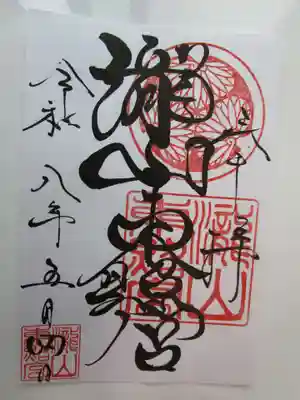 瀧山東照宮
令和八年五月四日
瀧山
東照宮